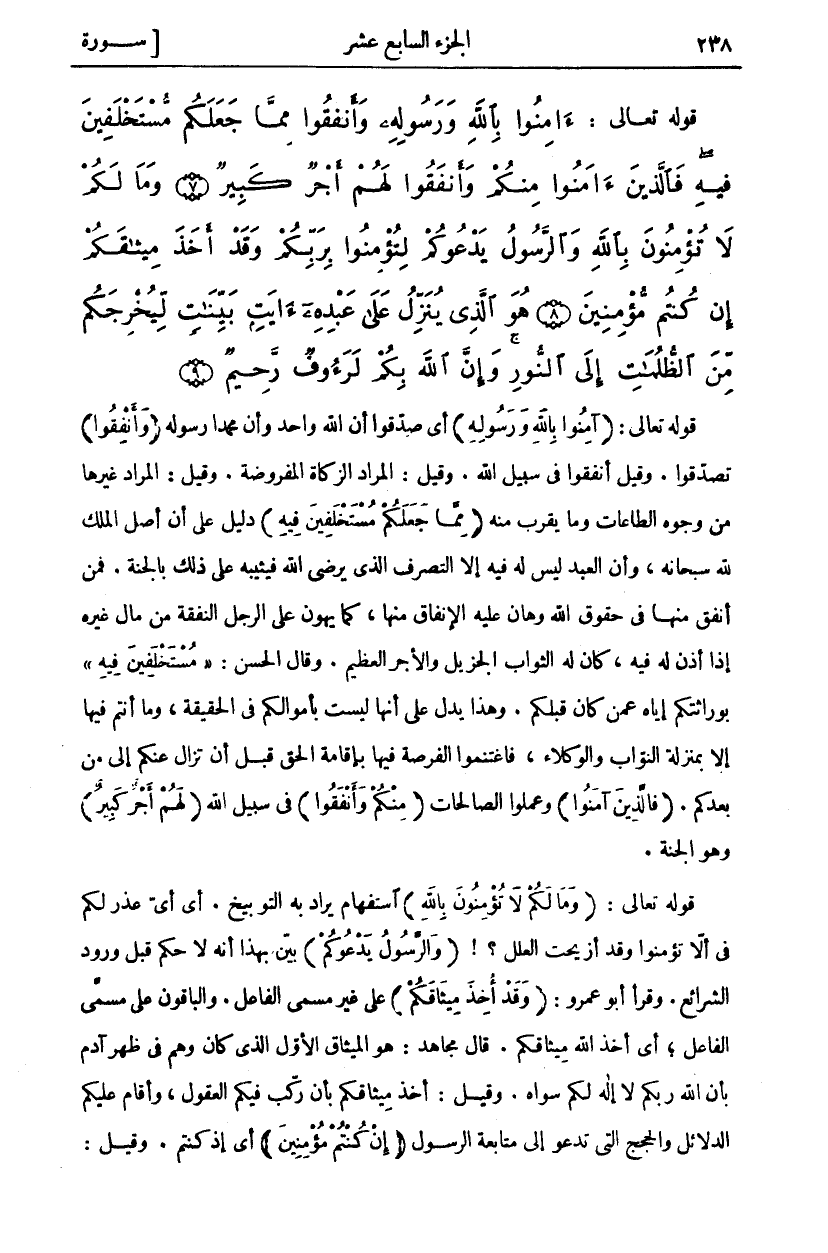 ٢٣٨ الجزء السابع عشر [ ســـورة
قوله تعـالى : ءَامِنُوا۟ بِٱللَّهِ وَرَسُولِهِۦ وَأَنفِقُوا۟ مِمَّا جَعَلَكُم مُّسْتَخْلَفِينَ
فِيهِۖ فَٱلَّذِينَ ءَامَنُوا۟ مِنكُمْ وَأَنفَقُوا۟ لَهُمْ أَجْرٌ كَبِيرٌ ﴿٧﴾ وَمَا لَكُمْ
لَا تُؤْمِنُونَ بِٱللَّهِ وَٱلرَّسُولُ يَدْعُوكُمْ لِتُؤْمِنُوا۟ بِرَبِّكُمْ وَقَدْ أَخَذَ مِيثَٰقَكُمْ
إِن كُنتُم مُّؤْمِنِينَ ﴿٨﴾ هُوَ ٱلَّذِى يُنَزِّلُ عَلَىٰ عَبْدِهِۦٓ ءَايَٰتٍۭ بَيِّنَٰتٍ لِّيُخْرِجَكُم
مِّنَ ٱلظُّلُمَٰتِ إِلَى ٱلنُّورِۚ وَإِنَّ ٱللَّهَ بِكُمْ لَرَءُوفٌ رَّحِيمٌ ﴿٩﴾
قوله تعالى : (آمِنُوا بِاللهِ وَرَسُولِهِ) أى صدّقوا أن الله واحد وأن محمدا رسوله (وَأَنْفِقُوا)
تصدّقوا . وقيل أنفقوا فى سبيل الله . وقيل : المراد الزكاة المفروضة . وقيل : المراد غيرها
من وجوه الطاعات وما يقرب منه (مِمَّا جَعَلَكُمْ مُسْتَخْلَفِينَ فِيهِ) دليل على أن أصل الملك
لله سبحانه ، وأن العبد ليس له فيه إلا التصرف الذى يرضى الله فيثيبه على ذلك بالجنة . فمن
أنفق منهـا فى حقوق الله وهان عليه الإنفاق منها ، كما يهون على الرجل النفقة من مال غيره
إذا أذن له فيه ، كان له الثواب الجزيل والأجر العظيم . وقال الحسن : « مُسْتَخْلَفِينَ فِيهِ »
بوراثتكم إياه عمن كان قبلكم . وهذا يدل على أنها ليست بأموالكم فى الحقيقة ، وما أنتم فيها
إلا بمنزلة النوّاب والوكلاء ، فاغتنموا الفرصة فيها بإقامة الحق قبـل أن تزال عنكم إلى من
بعدكم . (فالَّذِينَ آمَنُوا) وعملوا الصالحات (مِنْكُمْ وَأَنْفَقُوا) فى سبيل الله (لَهُمْ أَجْرٌ كَبِيرٌ)
وهو الجنة .
قوله تعالى : (وَمَا لَكُمْ لَا تُؤْمِنُونَ بِاللهِ) آستفهام يراد به التوبيخ . أى أىّ عذر لكم
فى ألّا تؤمنوا وقد أزيحت العلل ؟ ! (وَالرَّسُولُ يَدْعُوكُمْ) بيّن بهذا أنه لا حكم قبل ورود
الشرائع . وقرأ أبو عمرو : (وَقَدْ أُخِذَ مِيثَاقُكُمْ) على غير مسمى الفاعل . والباقون على مسمَّى
الفاعل ؛ أى أخذ الله ميثاقكم . قال مجاهد : هو الميثاق الأوّل الذى كان وهم فى ظهر آدم
بأن الله ربكم لا إله لكم سواه . وقيـل : أخذ ميثاقكم بأن ركّب فيكم العقول ، وأقام عليكم
الدلائل والحجج التى تدعو إلى متابعة الرسول (إِنْ كُنْتُمْ مُؤْمِنِينَ) أى إذ كنتم . وقيـل :